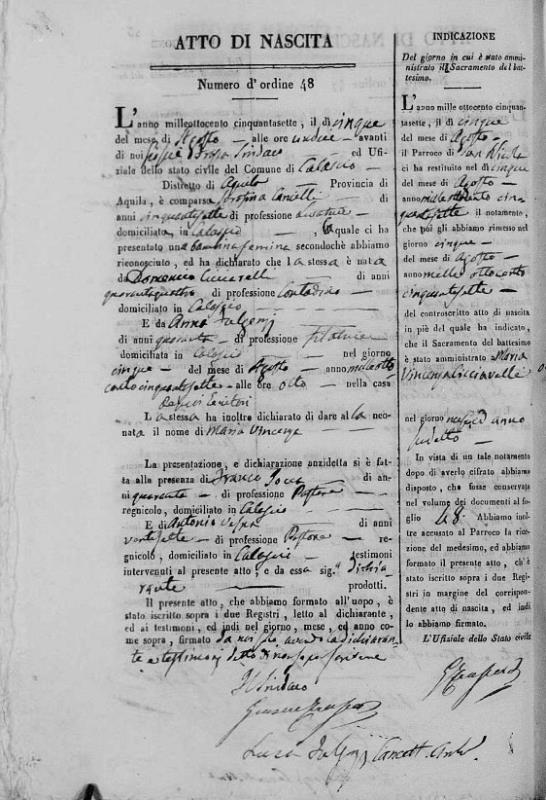 ATTO DI NASCITA
Numero d'ordine 48
L'anno milleottocento cinquantasette, il dì cinque
del mese di Agosto — alle ore undici — avanti
di noi Sindaco ed Ufi-
ziale dello stato civile del Comune di Calascio —
Distretto di Aquila — Provincia di
Aquila, è comparsa di
anni cinquantasette di professione
domiciliata in Calascio —, la quale ci ha
presentato una bambina femina secondochè abbiamo
riconosciuto, ed ha dichiarato che la stessa è nata
da Domenico Ciccarelli — di anni
quarantaquattro di professione Contadino —
domiciliato in Calascio —
E da Anna Fulgenzj —
di anni quaranta — di professione Filatrice
domiciliata in Calascio — nel giorno
cinque — del mese di Agosto — anno milleotto
cento cinquantasette — alle ore otto — nella casa
Genitori
La stessa ha inoltre dichiarato di dare alla neo-
nata il nome di Maria Vincenza —
La presentazione, e dichiarazione anzidetta si è fat-
ta alla presenza di Franco di an-
ni quaranta — di professione Pastore —
regnicolo, domiciliato in Calascio —
E di Antonio di anni
ventisette — di professione Pastore — re-
gnicolo, domiciliato in Calascio — testimoni
intervenuti al presente atto, e da essa sig.ª Dichia
rante — prodotti.
Il presente atto, che abbiamo formato all'uopo, è
stato iscritto sopra i due Registri, letto al dichiarante,
ed ai testimoni, ed indi nel giorno, mese, ed anno co-
me sopra, firmato da noi avendo la dichiaran
te e testimonj detto di non saper scrivere
Il Sindaco
Luca Fulgenzj Cancell.
INDICAZIONE
Del giorno in cui è stato ammi-
nistrato il Sacramento del bat-
tesimo.
L'anno mille ottocento cinquan-
tasette, il dì cinque
del mese di Agosto —
il Parroco di San Nicola
ci ha restituito nel dì cinque
del mese di Agosto —
anno milleottocento cin
quantasette il notamento,
che poi gli abbiamo rimesso nel
giorno cinque —
del mese di Agosto —
anno mille ottocento
cinquantasette —
del controscritto atto di nascita
in piè del quale ha indicato,
che il Sacramento del battesimo
è stato amministrato a Maria
Vincenza Ciccarelli
nel giorno mese ed anno
sudetto —
In vista di un tale notamento
dopo di averlo cifrato abbiamo
disposto, che fosse conservato
nel volume dei documenti al fo-
glio 48. Abbiamo inol-
tre accusato al Parroco la rice-
zione del medesimo, ed abbiamo
formato il presente atto, ch'è
stato iscritto sopra i due Regi-
stri in margine del corrispon-
dente atto di nascita, ed indi
lo abbiamo firmato.
L'Ufiziale dello Stato civile